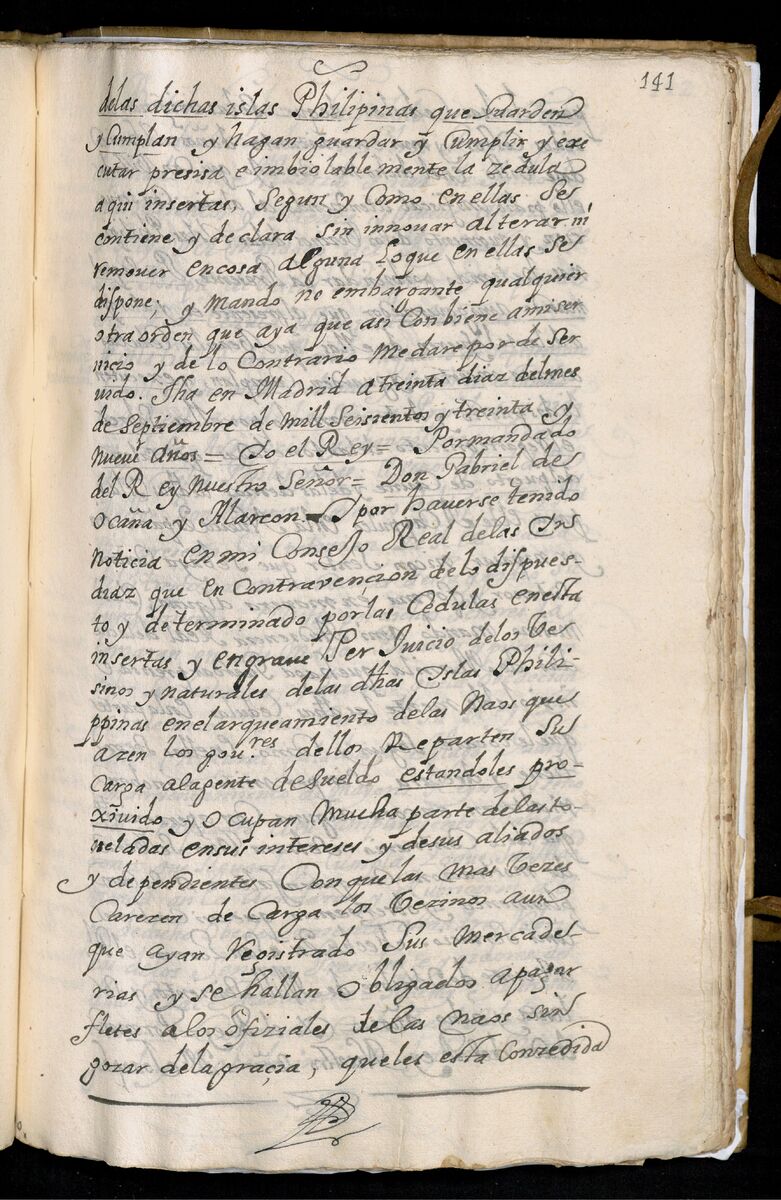 141
delas dichas islas Philipinas que Guarden
y Cumplan y hagan guardar y Cumplir y exe
cutar presisa e imbiolablemente la zedula
aqui insertas, segun y Como en ellas se
contiene y declara sin innovar alterar ni
remover en cosa alguna lo que en ellas se
dispone; y mando no embargante qualquier
otra orden que aya que asi Conbiene amiser
uicio y de lo Contrario me dare por de ser
uido. fha en Madrid a treinta diaz del mes
de septiembre de mill seisientos y treinta y
nueve años = Yo el Rey = Por mandado
del Rey nuestro señor = Don Gabriel de
Ocaña y Alarcon. Y por haverse tenido
noticia en mi Consejo Real de las Yns
diaz que en Contravençion de lo dispues-
to y determinado por las Cedulas en esta
insertas y en grave Per Juicio delos Ve
sinos y naturales de las dhas Yslas Phili-
ppinas en el arqueamiento de las Naos que
azen los gou.res dellos Reparten su
Carga ala gente de sueldo estandoles pro-
xiuido y ocupan mucha parte de las to-
neladas en sus intereses y de sus aliados
y dependientes Con que las mas Vezes
Carezen de Carga los Vezinos aun
que ayan Registrado sus mercade-
rias y se hallan obligados a pagar
fletes a los ofiziales de las naos sin
gozar de la graçia, que les esta Conzedida